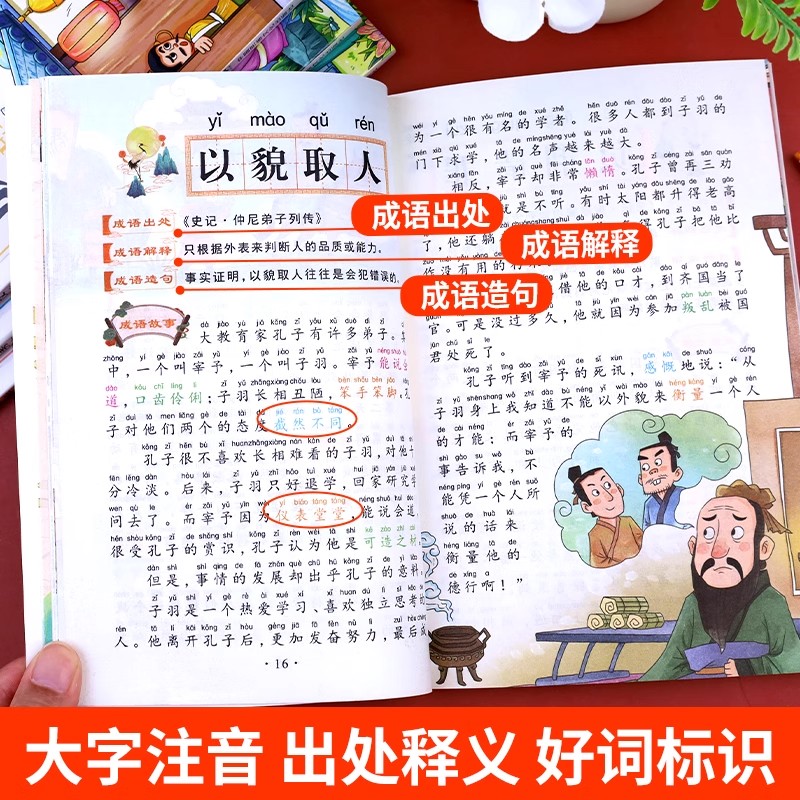 yǐ mào qǔ rén
以貌取人
成语出处 《史记·仲尼弟子列传》
成语解释 只根据外表来判断人的品质或能力。
成语造句 事实证明,以貌取人往往是会犯错误的。
成语出处
成语解释
成语造句
成语故事
大教育家孔子有许多弟子。其
中,一个叫宰予,一个叫子羽。宰予能说会
道,口齿伶俐;子羽长相丑陋,笨手笨脚。孔
子对他们两个的态度截然不同。
孔子很不喜欢长相难看的子羽,对他十
分冷淡。后来,子羽只好退学,回家研究学
问去了。而宰予因为仪表堂堂,能说会道
很受孔子的赏识,孔子认为他是可造之材
但是,事情的发展却出乎孔子的意料
子羽是一个热爱学习、喜欢独立思考的
人。他离开孔子后,更加发奋努力,最后成
·16·
为一个很有名的学者。很多人都到子羽的
门下求学,他的名声越来越大。
相反,宰予却非常懒惰。孔子曾再三劝
就是不听。有时太阳都升得老高
了,他还躺
得孔子把他比
作没有用的
借他的口才,到齐国当了
官。可是没过多久,他就因为参加叛乱被国
君处死了。
孔子听到宰予的死讯,感慨地说:“从
子羽身上我知道不能以外貌来衡量一个人
的才能;而宰予的
事告诉我,不
能凭一个人所
说的话来
衡量他的
德行啊!”
大字注音 出处释义 好词标识